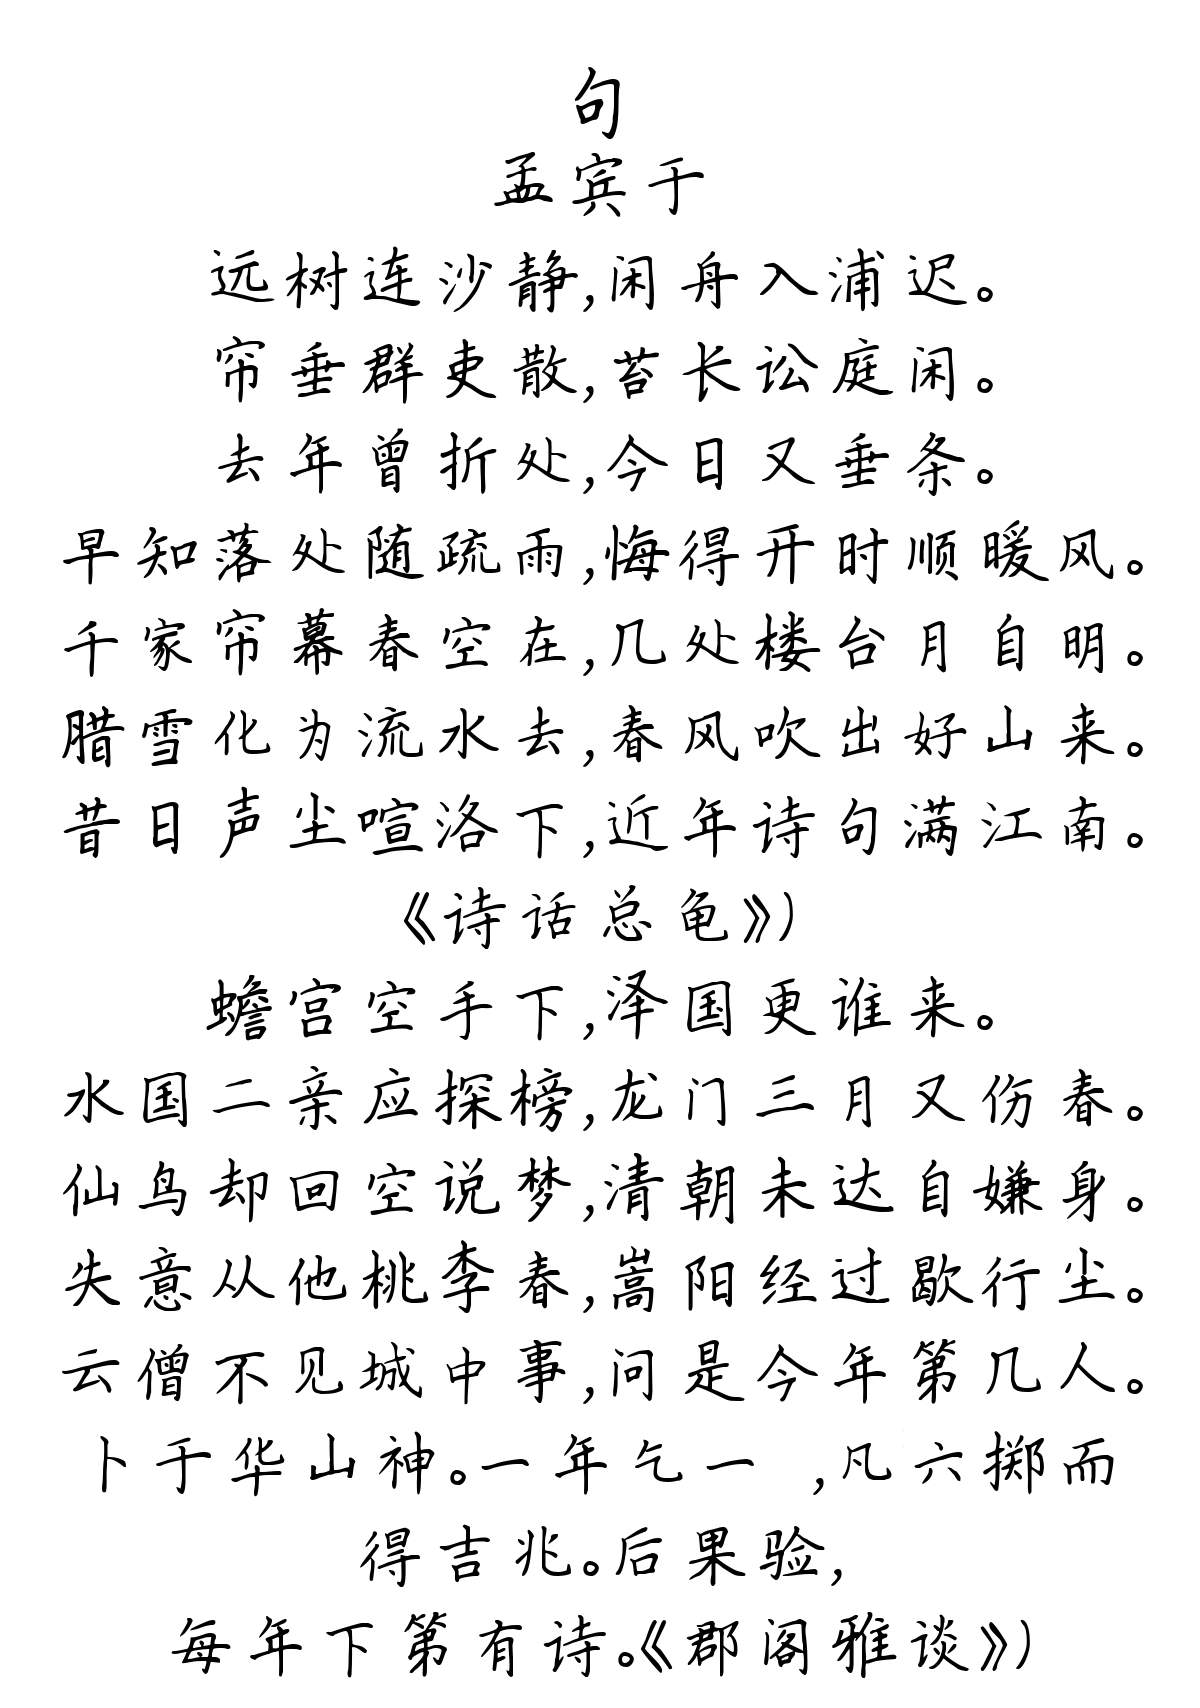 句
孟宾于
远树连沙静,闲舟入浦迟。
帘垂群吏散,苔长讼庭闲。
去年曾折处,今日又垂条。
早知落处随疏雨,悔得开时顺暖风。
千家帘幕春空在,几处楼台月自明。
腊雪化为流水去,春风吹出好山来。
昔日声尘喧洛下,近年诗句满江南。
《诗话总龟》)
蟾宫空手下,泽国更谁来。
水国二亲应探榜,龙门三月又伤春。
仙鸟却回空说梦,清朝未达自嫌身。
失意从他桃李春,嵩阳经过歇行尘。
云僧不见城中事,问是今年第几人。
卜于华山神。一年乞一 ,凡六掷而
得吉兆。后果验,
每年下第有诗。《郡阁雅谈》)